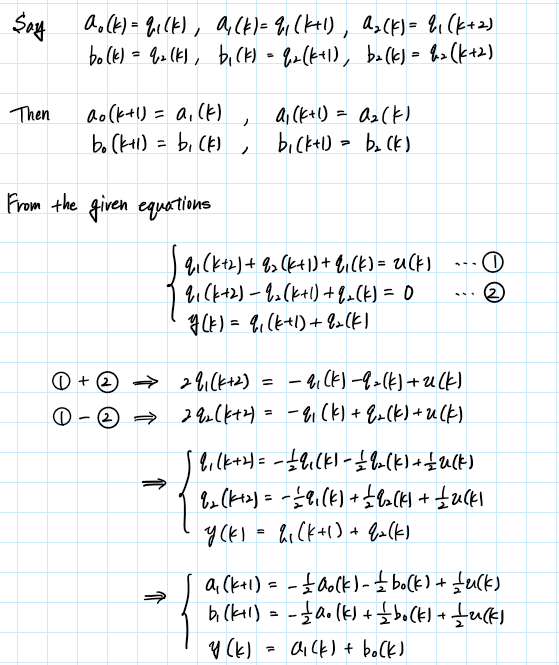 Say a₀(k) = q₁(k), a₁(k) = q₁(k+1), a₂(k) = q₁(k+2)
b₀(k) = q₂(k), b₁(k) = q₂(k+1), b₂(k) = q₂(k+2)
Then a₀(k+1) = a₁(k) , a₁(k+1) = a₂(k)
b₀(k+1) = b₁(k) , b₁(k+1) = b₂(k)
From the given equations
q₁(k+2) + q₂(k+1) + q₁(k) = u(k) ... ①
q₁(k+2) - q₂(k+1) + q₂(k) = 0 ... ②
y(k) = q₁(k+1) + q₂(k)
① + ② ⇒ 2q₁(k+2) = -q₁(k) - q₂(k) + u(k)
① - ② ⇒ 2q₂(k+2) = -q₁(k) + q₂(k) + u(k)
⇒ q₁(k+2) = -½q₁(k) - ½q₂(k) + ½u(k)
q₂(k+2) = -½q₁(k) + ½q₂(k) + ½u(k)
y(k) = q₁(k+1) + q₂(k)
⇒ a₁(k+1) = -½a₀(k) - ½b₀(k) + ½u(k)
b₁(k+1) = -½a₀(k) + ½b₀(k) + ½u(k)
y(k) = a₁(k) + b₀(k)